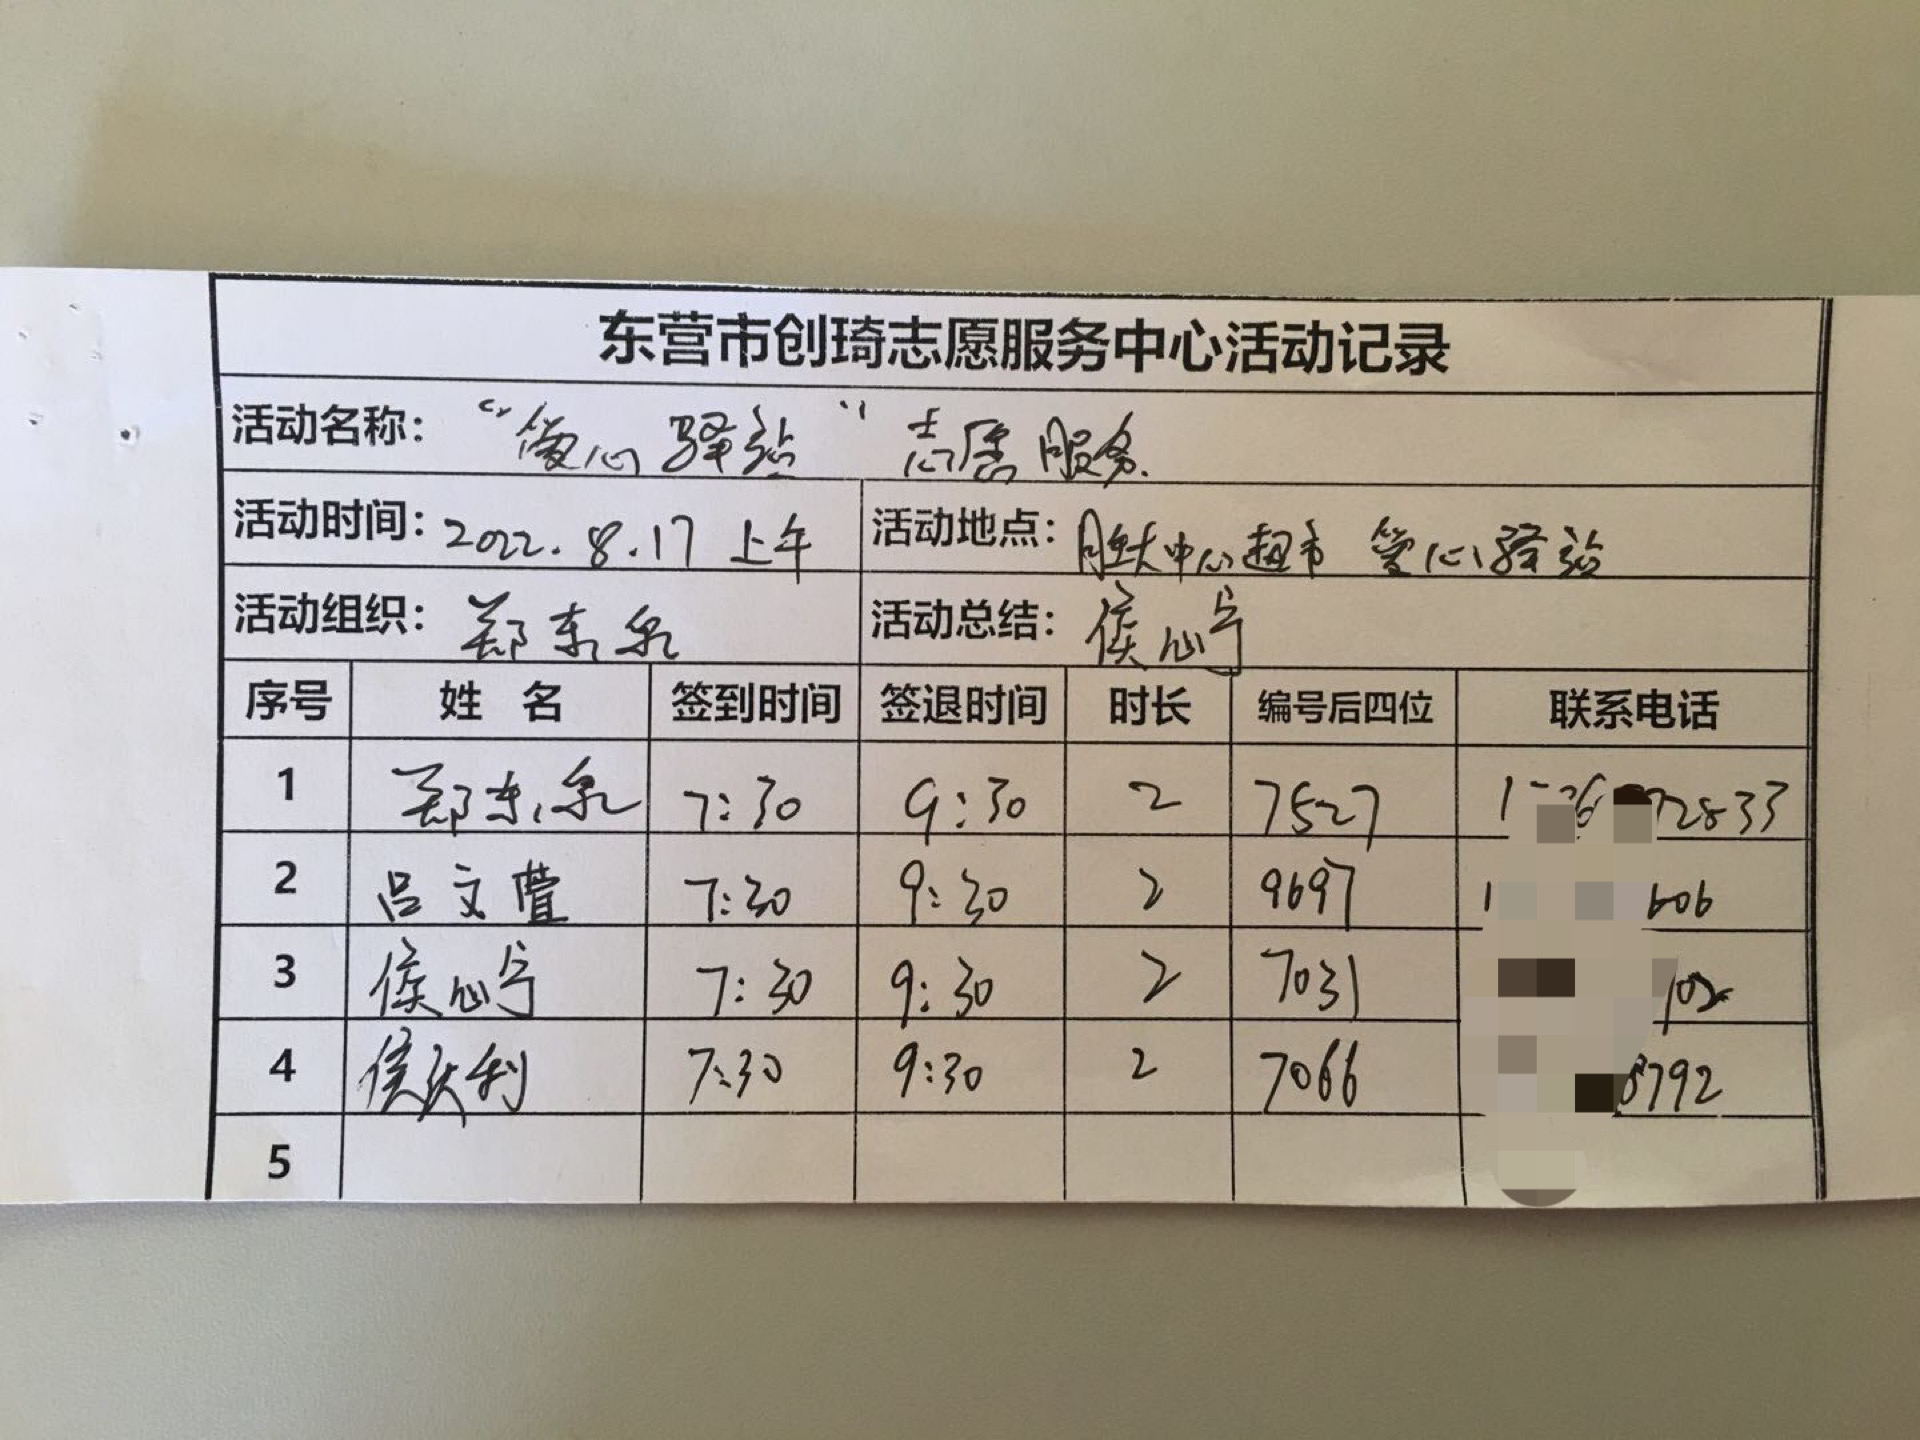 东营市创琦志愿服务中心活动记录
活动名称： “爱心驿站”志愿服务.
活动时间： 2022.8.17 上午 活动地点： 胜大中心超市 爱心驿站
活动组织： 郑东泉 活动总结：
序号 姓名 签到时间 签退时间 时长 编号后四位 联系电话
1 郑东泉 7:30 9:30 2 7527 72833
2 吕文萱 7:30 9:30 2 9697 1 606
3 7:30 9:30 2 7031
4 7:30 9:30 2 7066 8792
5